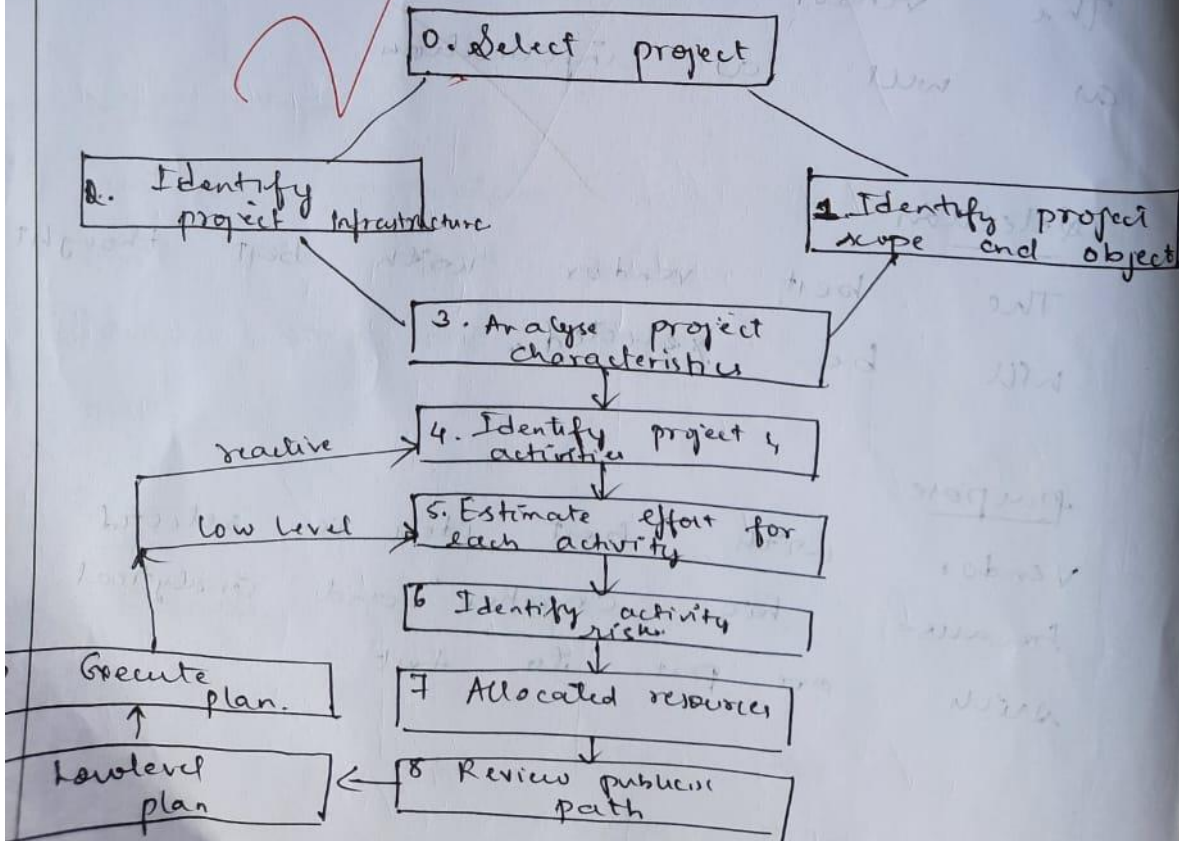 0. Select project
2. Identify
project Infrastructure
1. Identify project
scope and object
3. Analyse project
characteristics
4. Identify project
activities
reactive
5. Estimate effort for
each activity
low level
6 Identify activity
risk.
7 Allocated resources
Execute
plan.
8 Review publicise
path
Lowlevel
plan